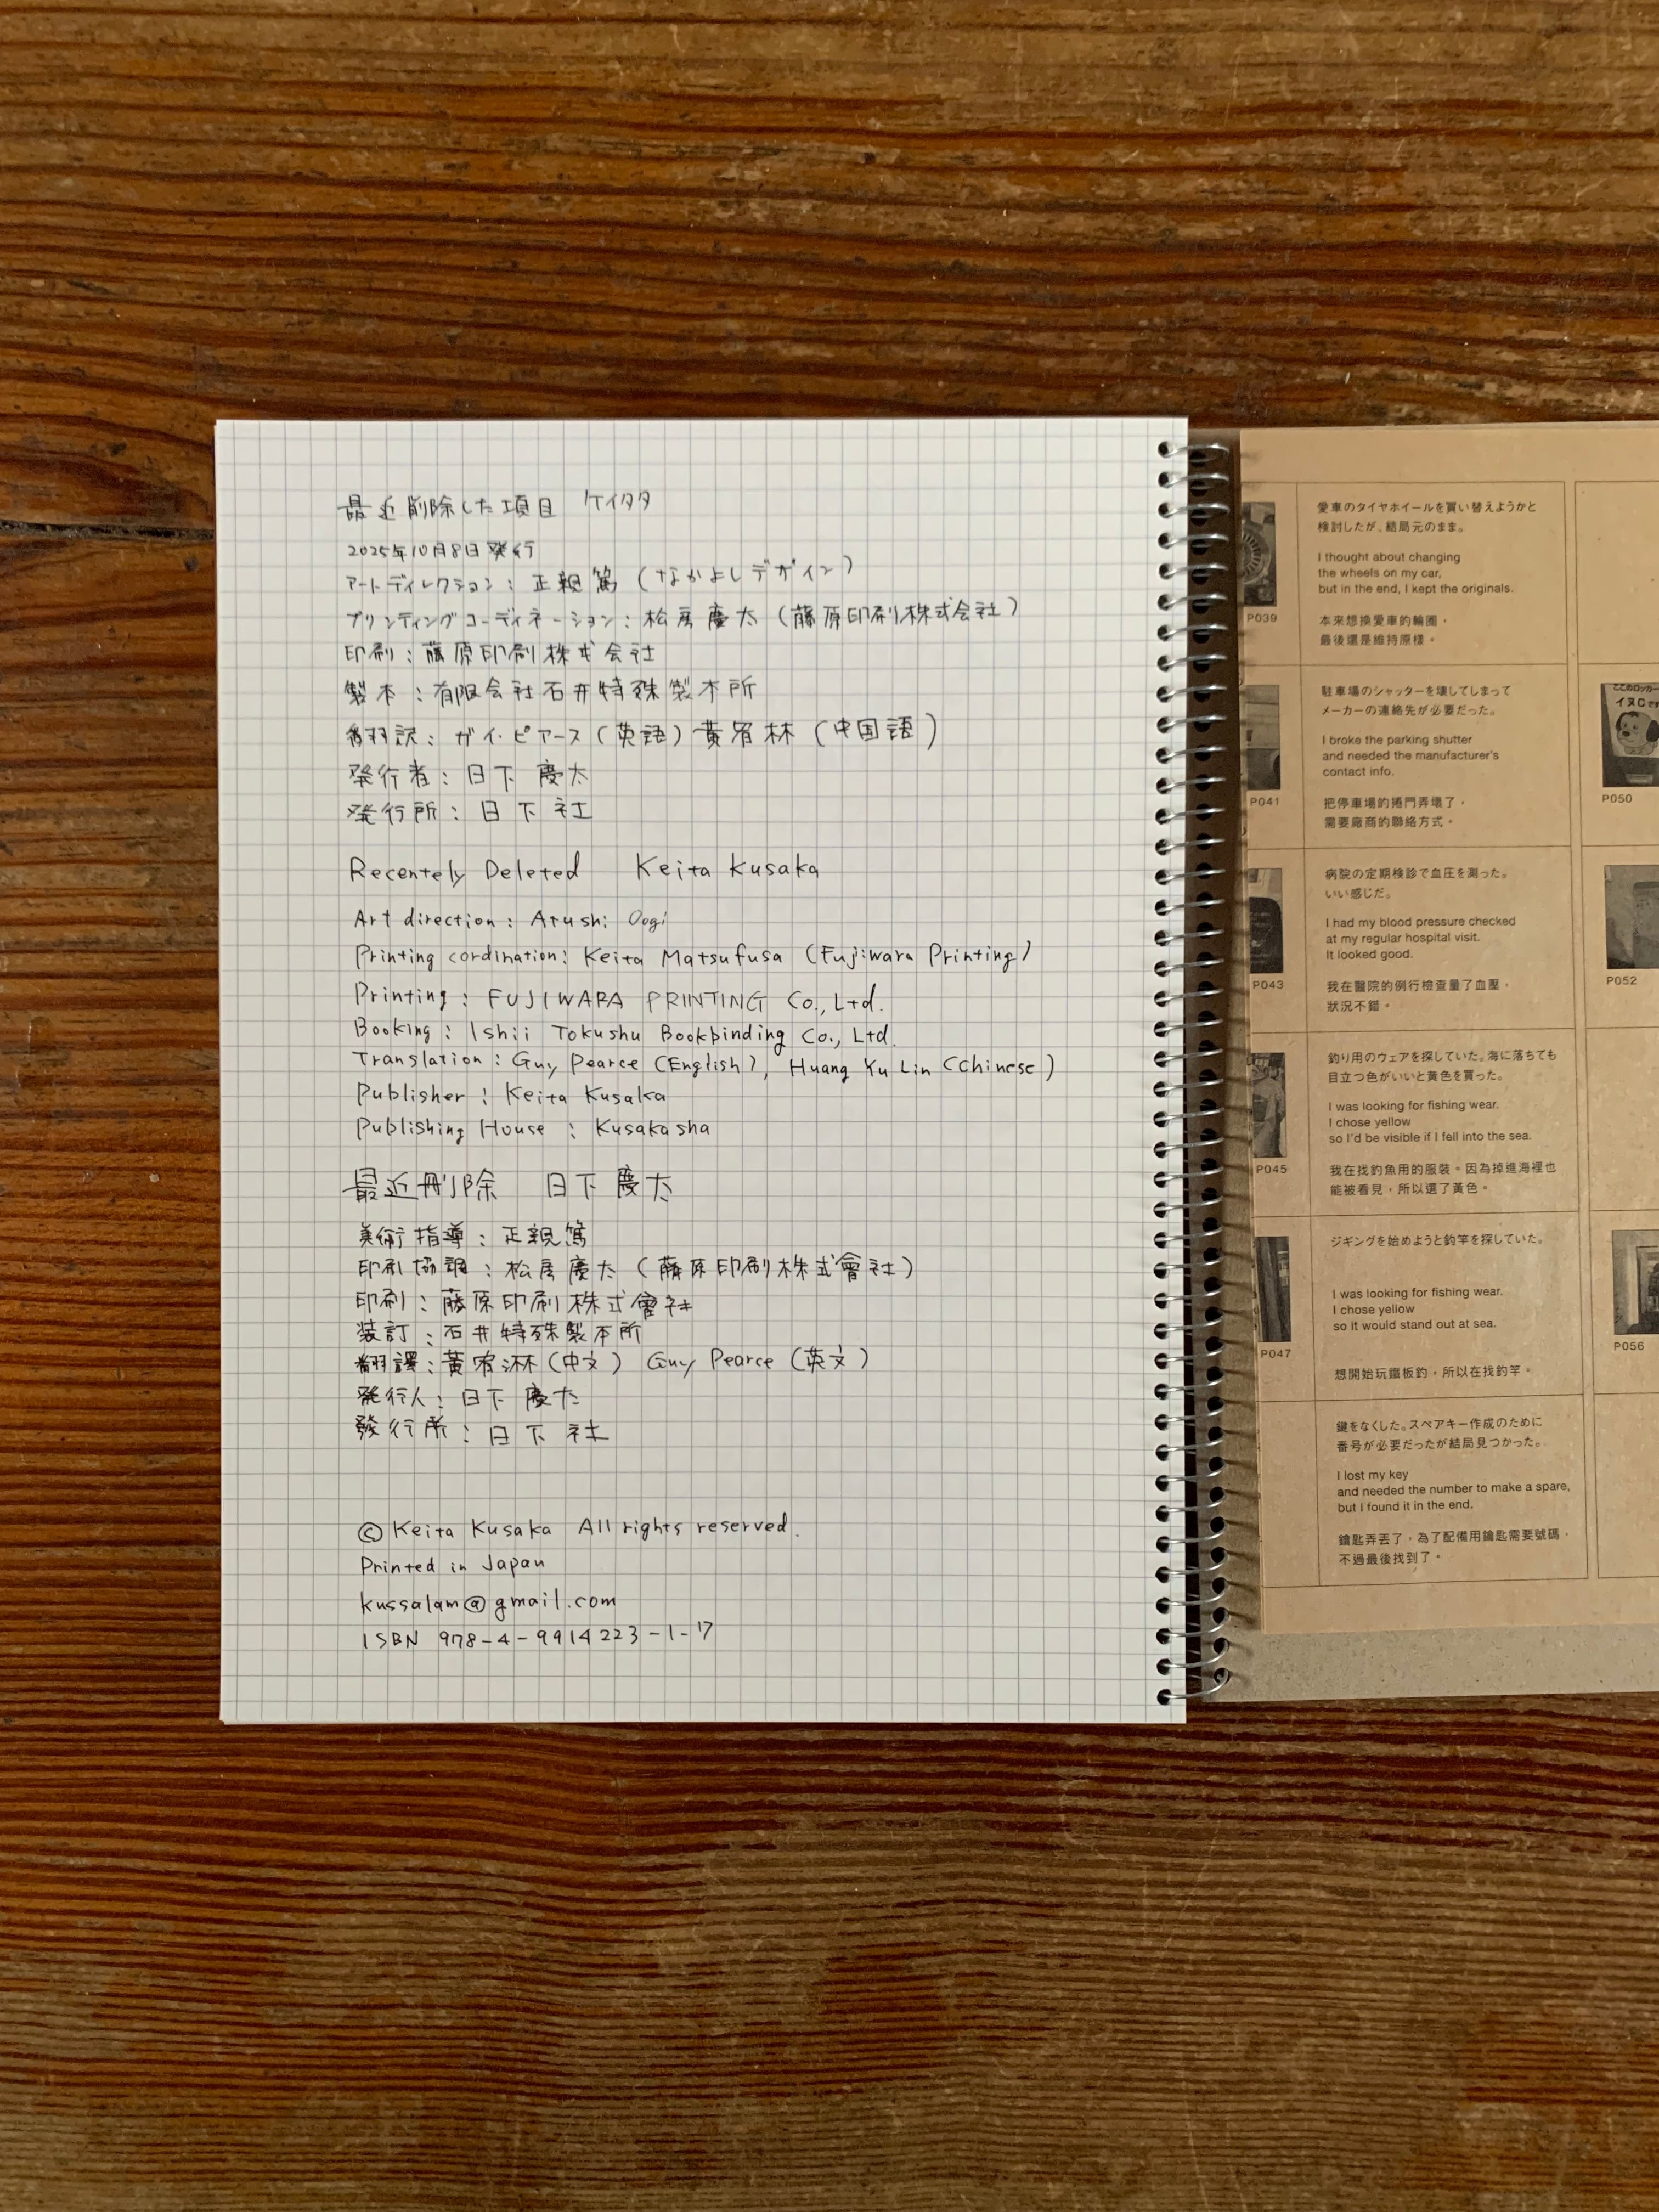 最近削除した項目 ケイタタ
2025年10月8日発行
アートディレクション：正親篤（なかよしデザイン）
プリンティングコーディネーション：松房慶太（藤原印刷株式会社）
印刷：藤原印刷株式会社
製本：有限会社石井特殊製本所
翻訳：ガイ・ピアース（英語）黄宥林（中国語）
発行者：日下 慶太
発行所：日下社
Recentely Deleted Keita Kusaka
Art direction : Atushi Oogi
Printing cordination: Keita Matsufusa (Fujiwara Printing)
Printing : FUJIWARA PRINTING Co., Ltd.
Booking : Ishii Tokushu Bookbinding Co., Ltd.
Translation : Guy Pearce (English), Huang Yu Lin (Chinese)
Publisher : Keita Kusaka
Publishing House : Kusakasha
最近刪除 日下慶太
美術指導：正親篤
印刷協調：松房慶太（藤原印刷株式會社）
印刷：藤原印刷株式會社
装訂：石井特殊製本所
翻譯：黃宥淋（中文） Guy Pearce（英文）
発行人：日下 慶太
發行所：日下社
© Keita Kusaka All rights reserved.
Printed in Japan
kussalam@gmail.com
ISBN 978-4-9914223-1-17
P039
愛車のタイヤホイールを買い替えようかと
検討したが、結局元のまま。
I thought about changing
the wheels on my car,
but in the end, I kept the originals.
本来想換愛車的輪圈，
最後還是維持原樣。
P041
駐車場のシャッターを壊してしまって
メーカーの連絡先が必要だった。
I broke the parking shutter
and needed the manufacturer's
contact info.
把停車場的捲門弄壞了，
需要廠商的聯絡方式。
P043
病院の定期検診で血圧を測った。
いい感じだ。
I had my blood pressure checked
at my regular hospital visit.
It looked good.
我在醫院的例行檢查量了血壓，
狀況不錯。
P045
釣り用のウェアを探していた。海に落ちても
目立つ色がいいと黄色を買った。
I was looking for fishing wear.
I chose yellow
so I'd be visible if I fell into the sea.
我在找釣魚用的服裝。因為掉進海裡也
能被看見，所以選了黃色。
P047
ジギングを始めようと釣竿を探していた。
I was looking for fishing wear.
I chose yellow
so it would stand out at sea.
想開始玩鐵板釣，所以在找釣竿。
鍵をなくした。スペアキー作成のために
番号が必要だったが結局見つかった。
I lost my key
and needed the number to make a spare,
but I found it in the end.
鑰匙弄丟了，為了配備用鑰匙需要號碼，
不過最後找到了。
ここのロッカー
イヌC
P050
P052
P056